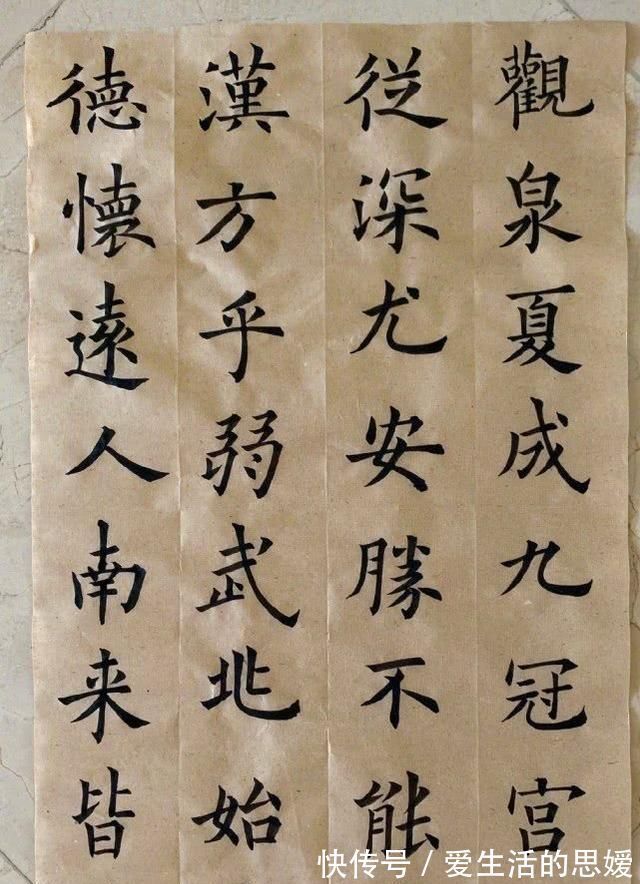 觀泉夏成九冠宫
從深尤安勝不能
漢方乎弱武北始
德懷遠人南来皆
快传号/爱生活的思嫒